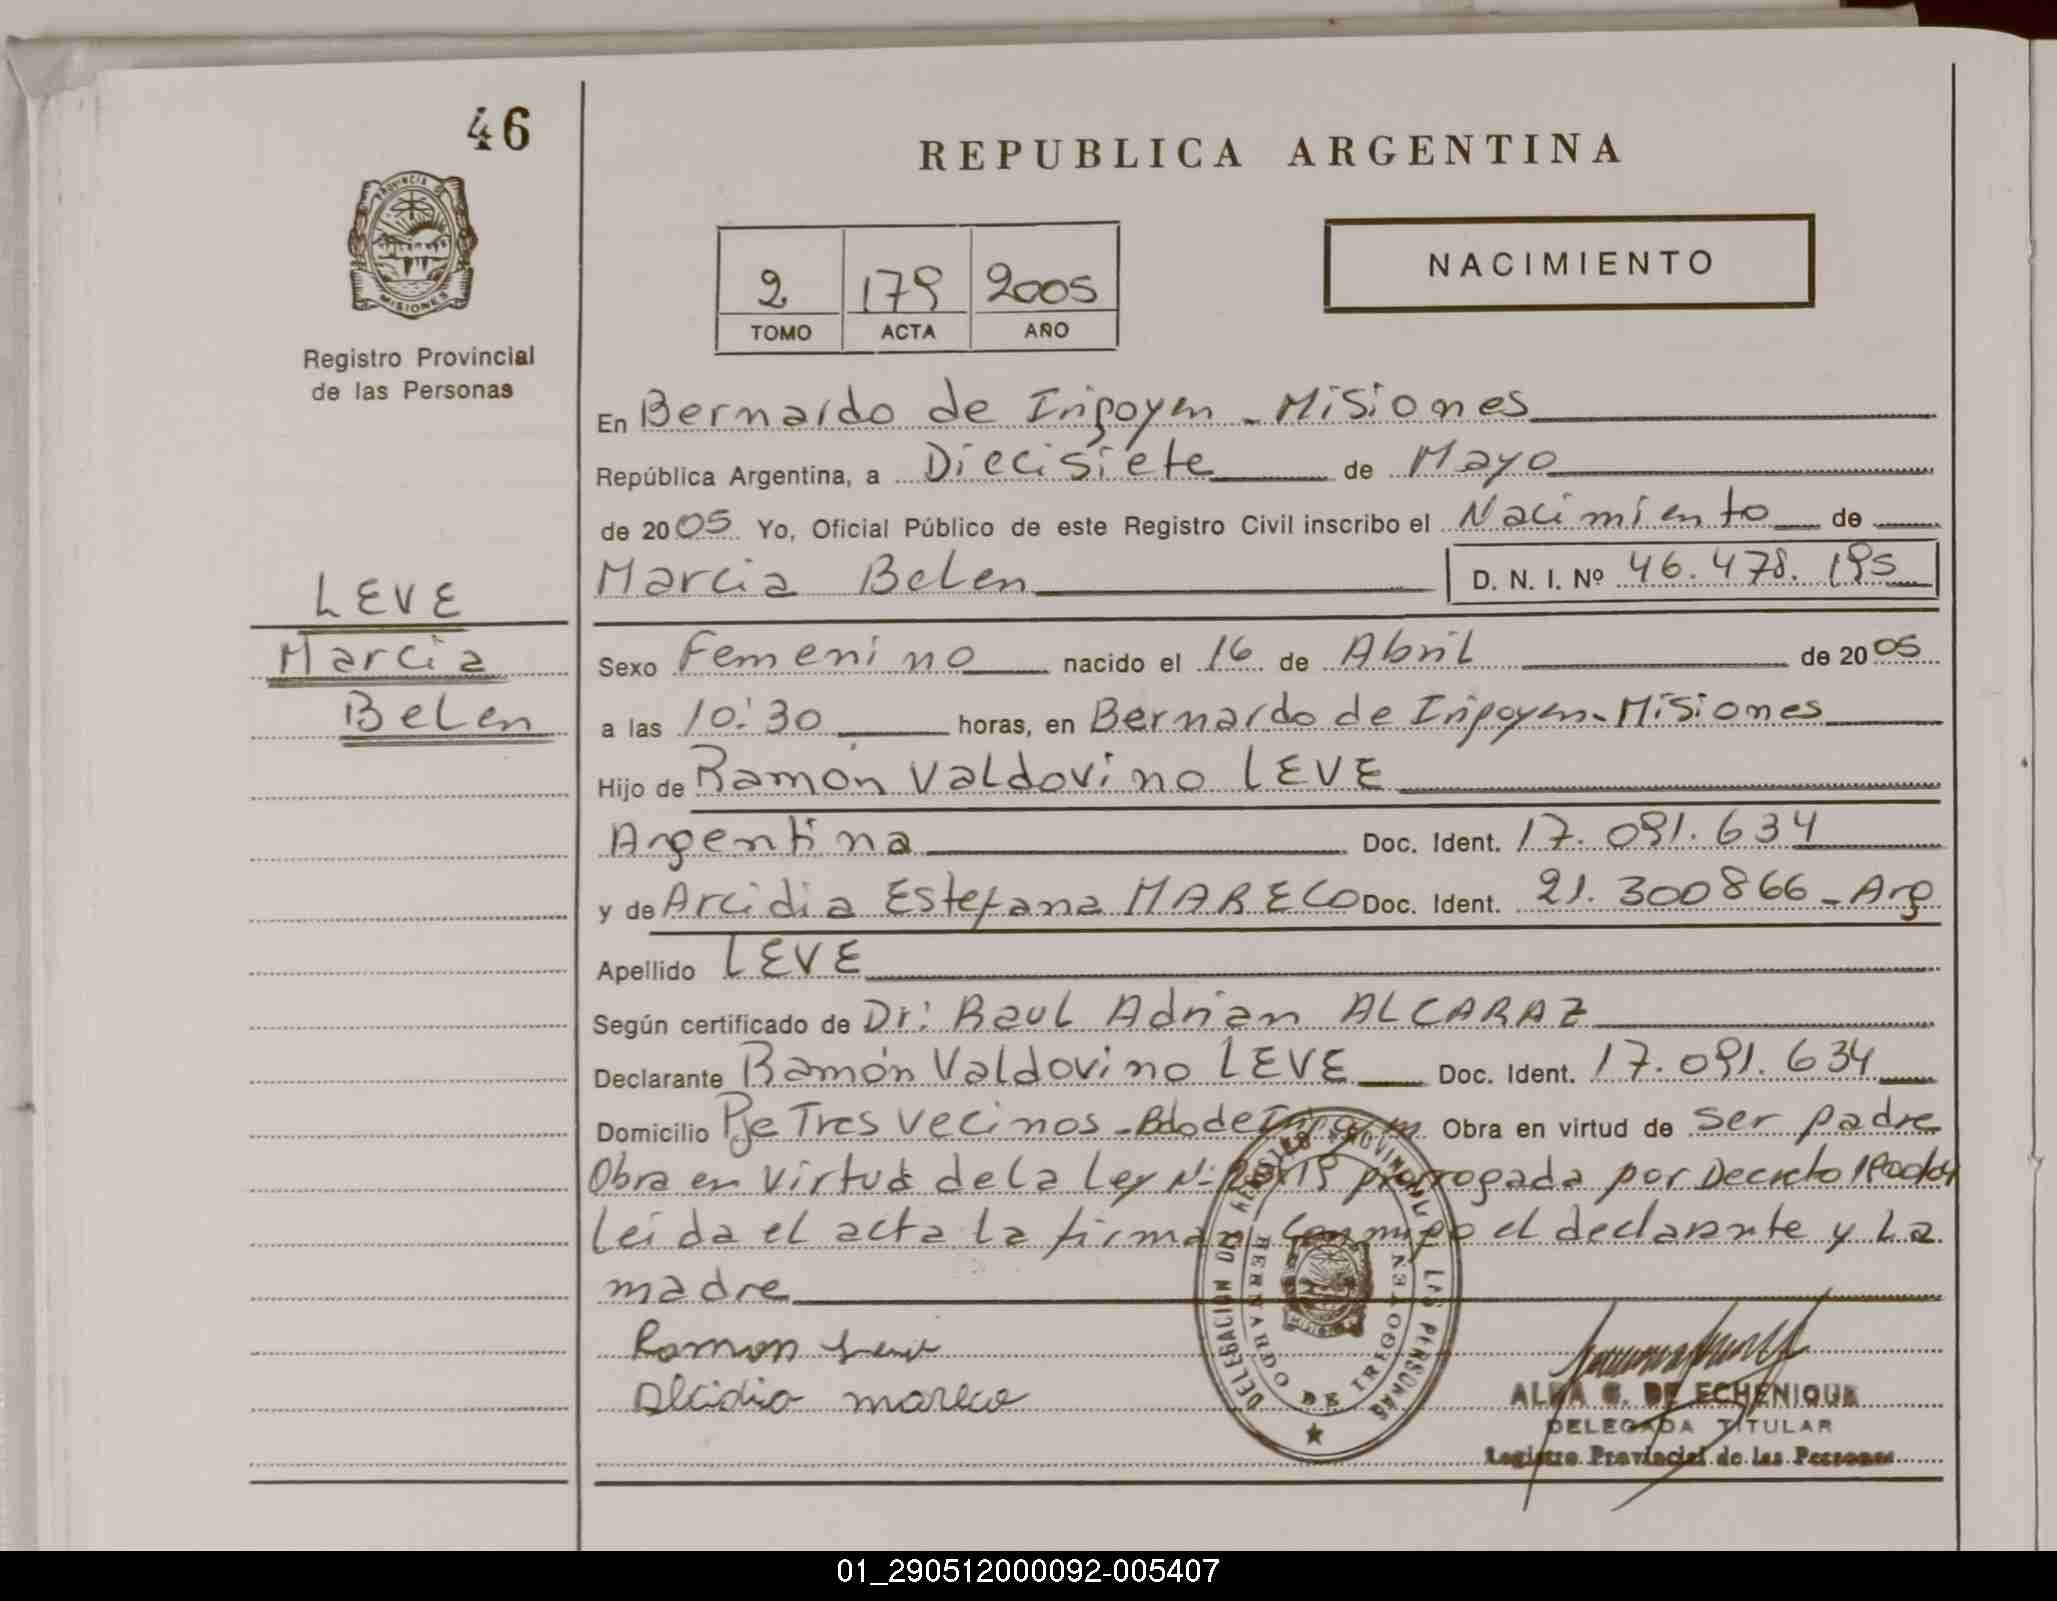 46
REPUBLICA ARGENTINA
PROVINCIA DE
MISIONES
Registro Provincial
de las Personas
NACIMIENTO
2 179 2005
TOMO ACTA AÑO
En Bernardo de Irigoyen - Misiones
República Argentina, a Diecisiete de Mayo
de 2005 Yo, Oficial Público de este Registro Civil inscribo el Nacimiento de
Marcia Belen D. N. I. Nº 46.478.195
LEVE
Marcia
Belen
Sexo Femenino nacido el 16 de Abril de 2005
a las 10:30 horas, en Bernardo de Irigoyen - Misiones
Hijo de Ramón Valdovino LEVE
Argentina Doc. Ident. 17.091.634
y de Arcidia Estefana MARECO Doc. Ident. 21.300866 - Arg
Apellido LEVE
Según certificado de Dr: Raul Adrian ALCARAZ
Declarante Ramón Valdovino LEVE Doc. Ident. 17.091.634
Domicilio Pje Tres Vecinos - Bdo de Irigoyen Obra en virtud de ser padre
Obra en Virtud de la Ley Nº prorrogada por Decreto
Leida el acta la firman conmigo el declarante y la
madre
Ramon Leve
Alcidia mareco
DELEGACION DEL REGISTRO PROVINCIAL DE LAS PERSONAS
BERNARDO DE IRIGOYEN
MISIONES
ALBA G. DE ECHENIQUE
DELEGADA TITULAR
Registro Provincial de las Personas
01_290512000092-005407